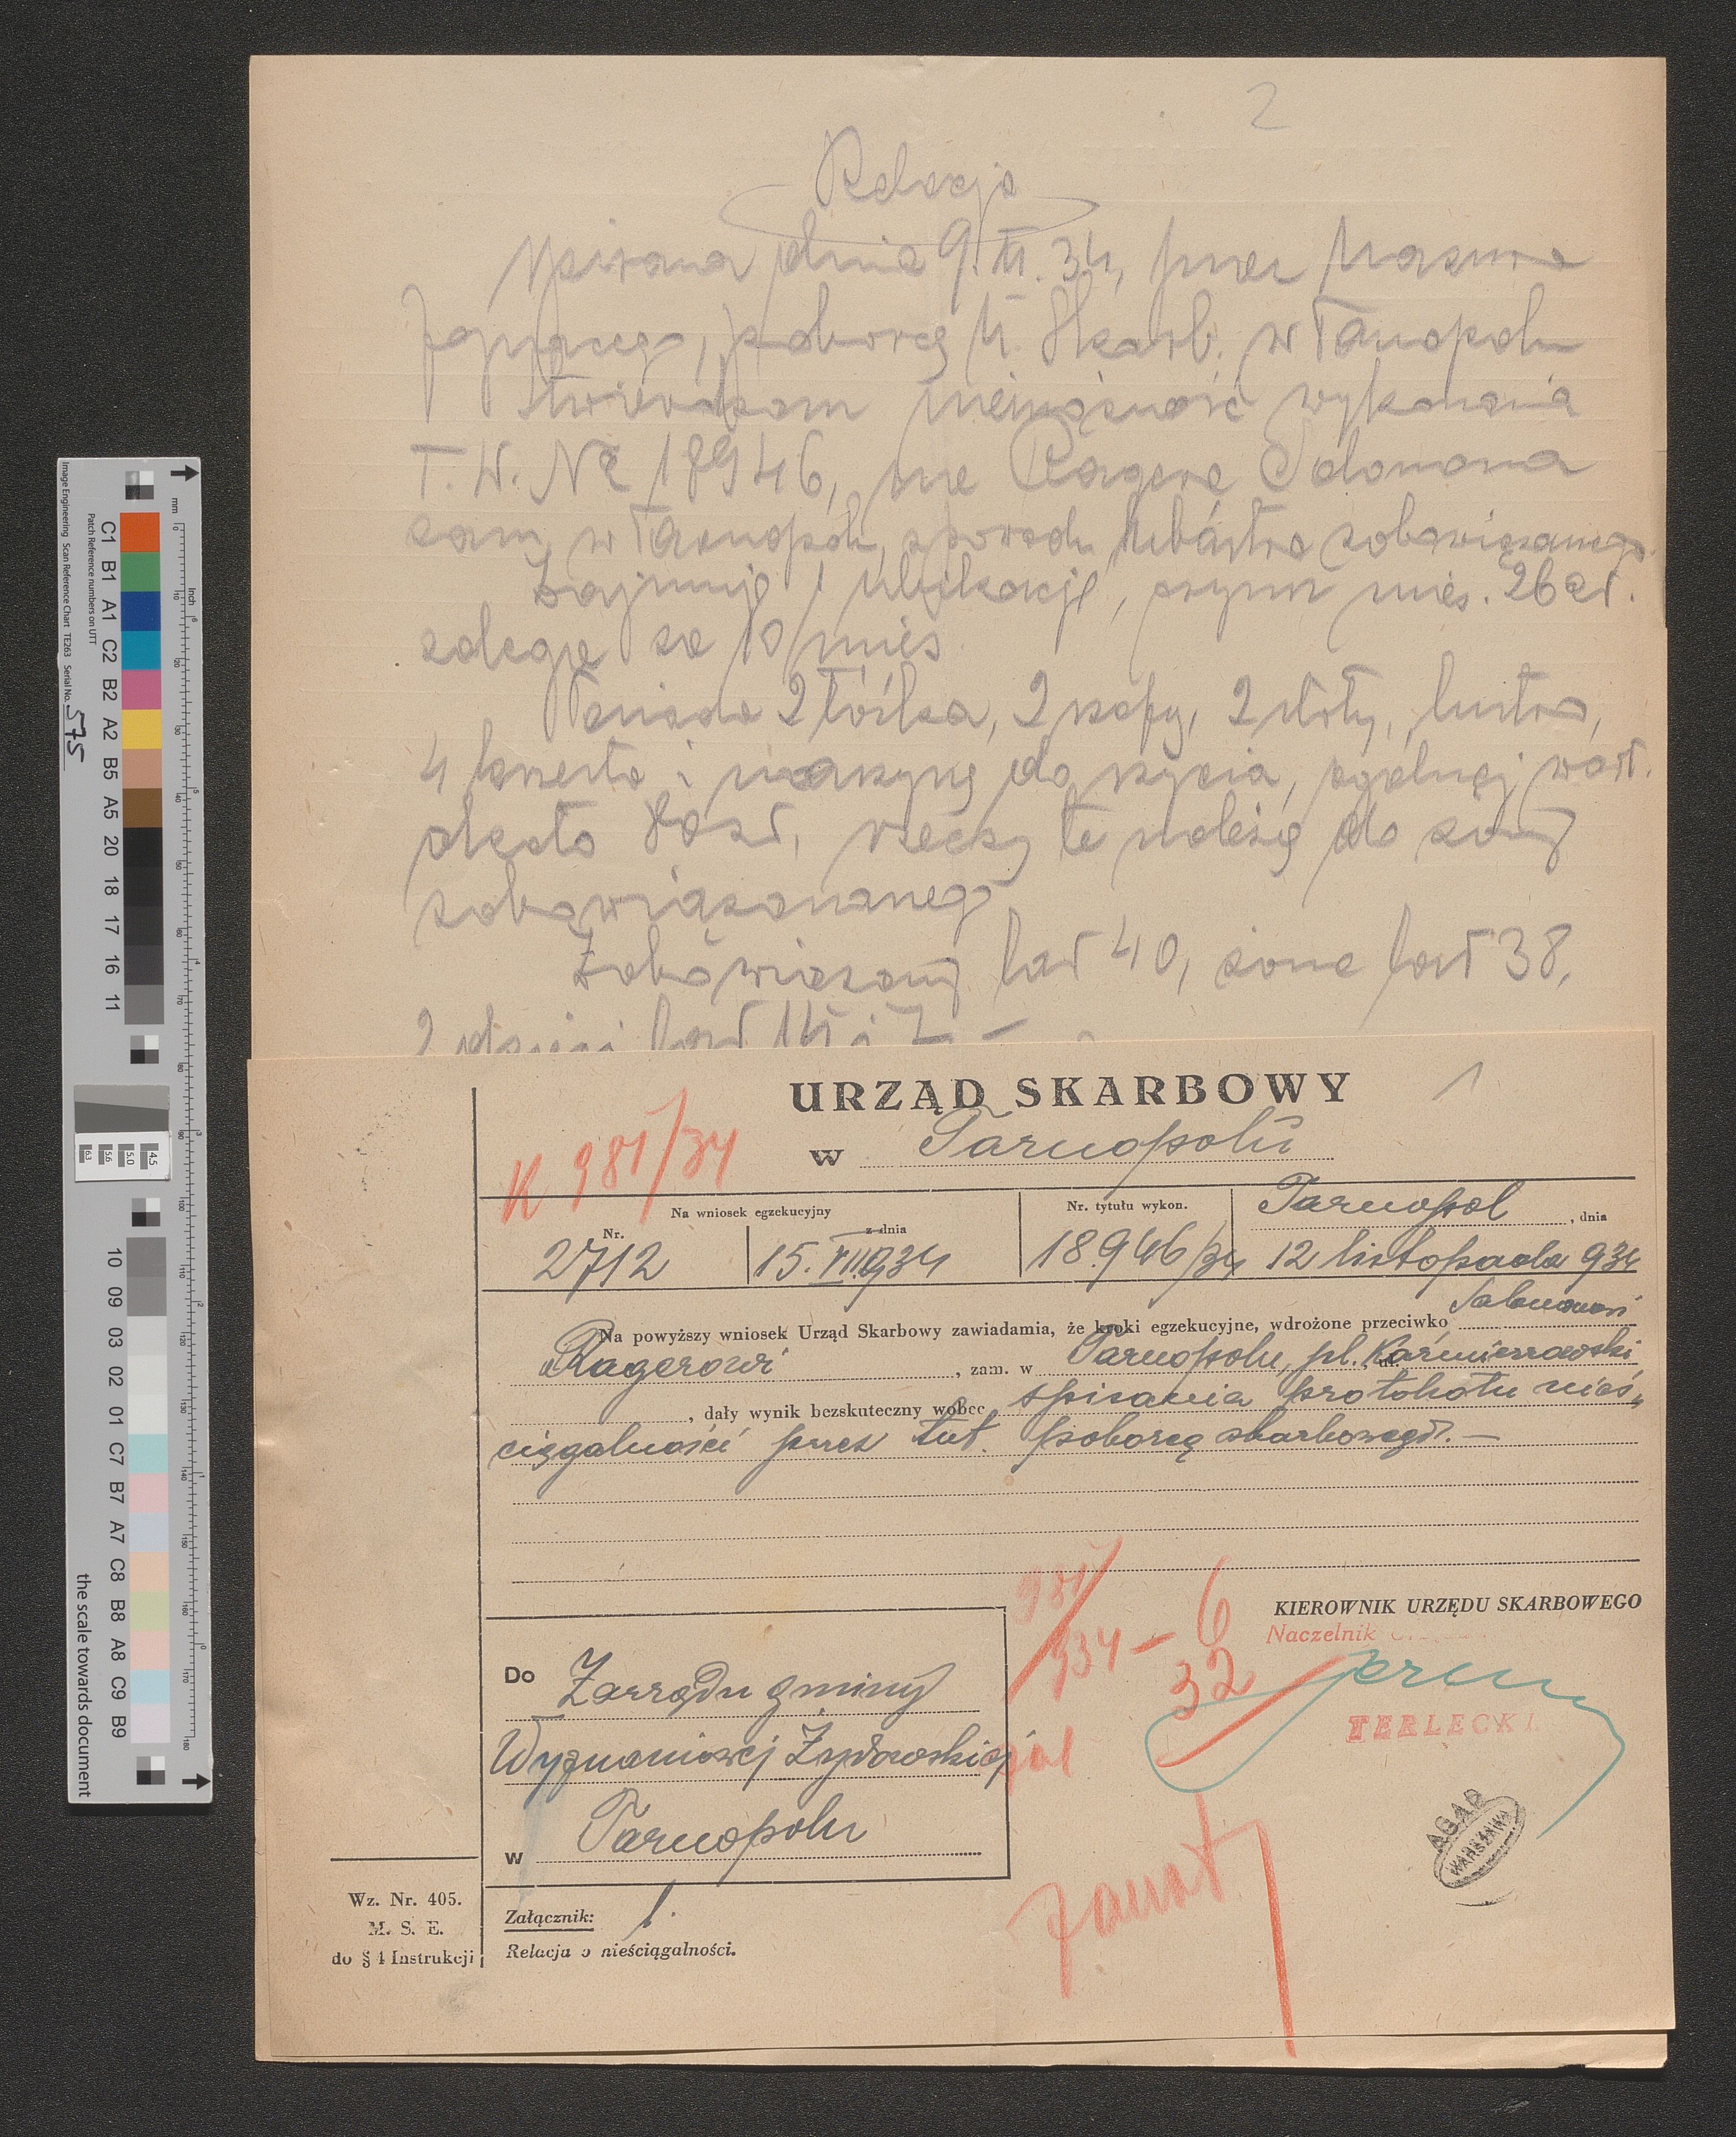 2
Relacja
spisana dnia 9.XI.34, przez
poborcę U. Skarb. w Tarnopolu
Stwierdzam niemożność wykonania
T.W. Nr 18946, na Ragera Salomona
zam. w Tarnopolu, z powodu ubóstwa zobowiązanego.
Zajmuje 1 ubikację, czynsz mies. 26 zł.
zalega za 10 mies.
Posiada 2 łóżka, 2 szafy, 2 stoły, lustro,
4 krzesła i maszynę do szycia, ogólnej wart.
około 80 zł, rzeczy te należą do żony
zobowiązananego
Zobowiązany lat 40, żona lat 38,
2 dzieci lat 14 i 7 –
URZĄD SKARBOWY
1
w Tarnopolu
K 981/34
Na wniosek egzekucyjny
Nr. z dnia
2712 15.VII.934
Nr. tytułu wykon.
18946/34
Tarnopol, dnia
12 listopada 934
Na powyższy wniosek Urząd Skarbowy zawiadamia, że kroki egzekucyjne, wdrożone przeciwko Salomonowi
Ragerowi, zam. w Tarnopolu, pl. Kazimierzowski
, dały wynik bezskuteczny wobec spisania protokołu nieś„
ciągalności przez tut. poborcę skarbowego. —
981/934 – 6
32
KIEROWNIK URZĘDU SKARBOWEGO
Naczelnik
TERLECKI
Do Zarządu gminy
Wyznaniowej Żydowskiej
w Tarnopolu
AGAD
WARSZAWA
Wz. Nr. 405.
M. S. E.
do § 4 Instrukcji
Załącznik: 1.
Relacja o nieściągalności.
Image Engineering Scan Reference Chart TE263 Serial No. 575
Patch Reference numbers on UTT
C1 B1 A1 C2 B2 A2 B5 A5 20 18 17 16 11
10 09 03 02 01 C7 B7 A7 C8 B8 A8 C9 B9
the scale towards document